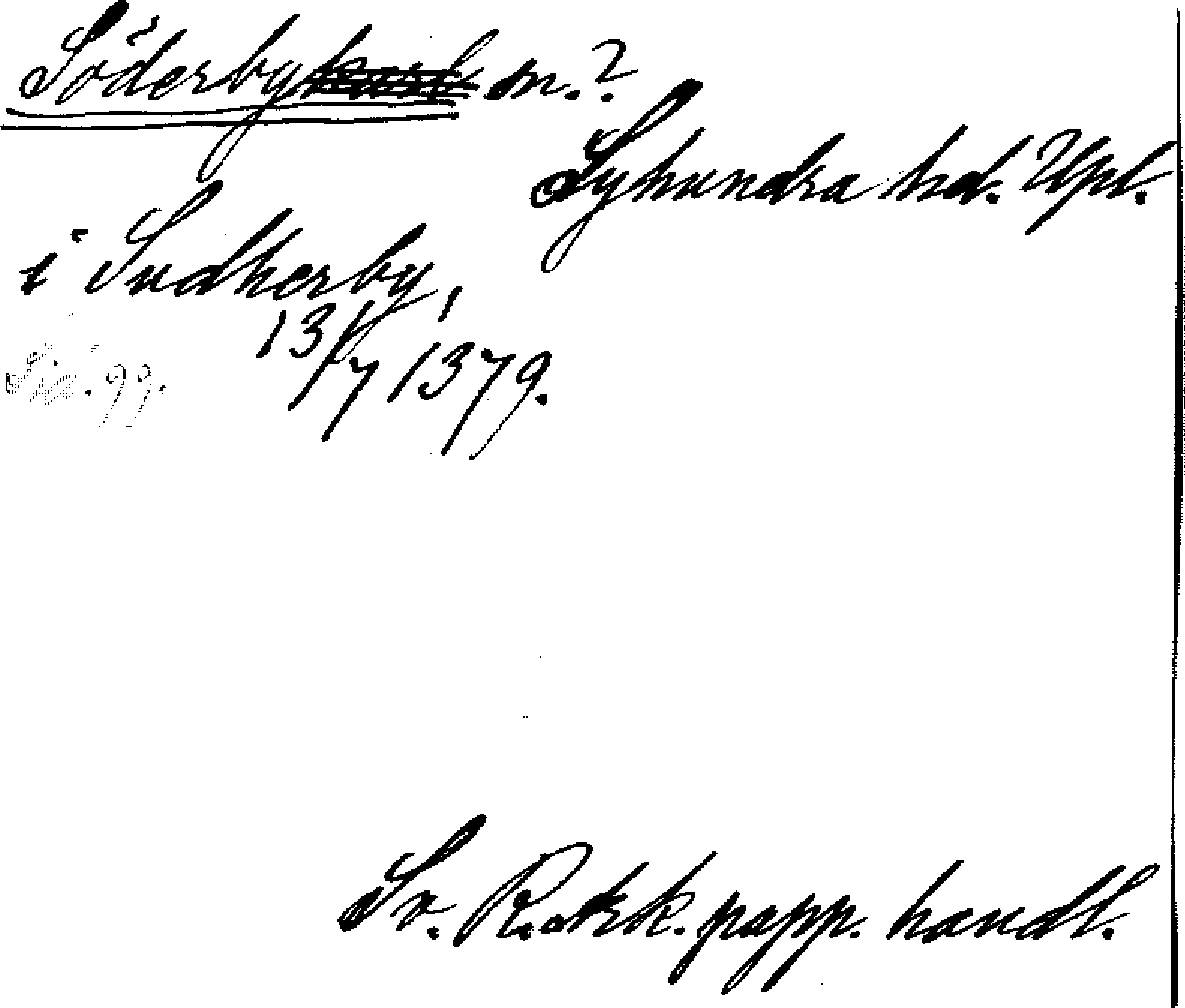 Söderbykarl sn.?
Lyhundra hd. Upl.
i Sudherby,
13/7 1379.
Sv. R. ark. papp. handl.